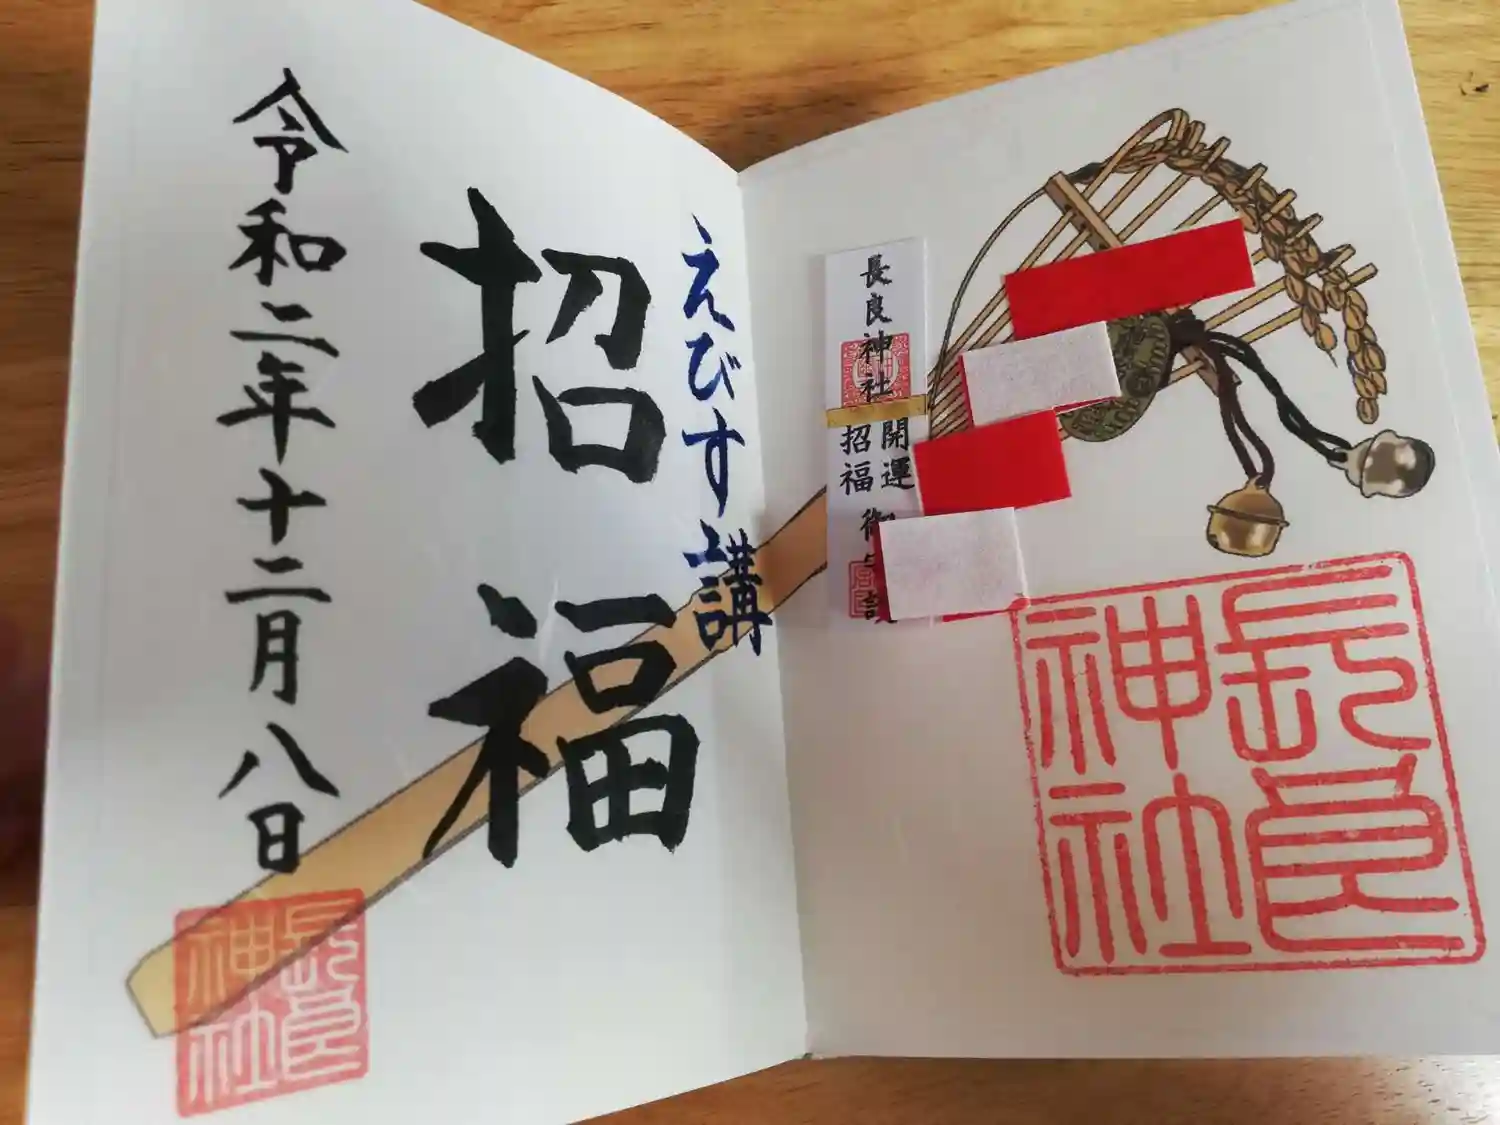 長良神社
開運
招福
御守護
長良
神社
えびす講
招福
令和二年十二月八日
長良
神社